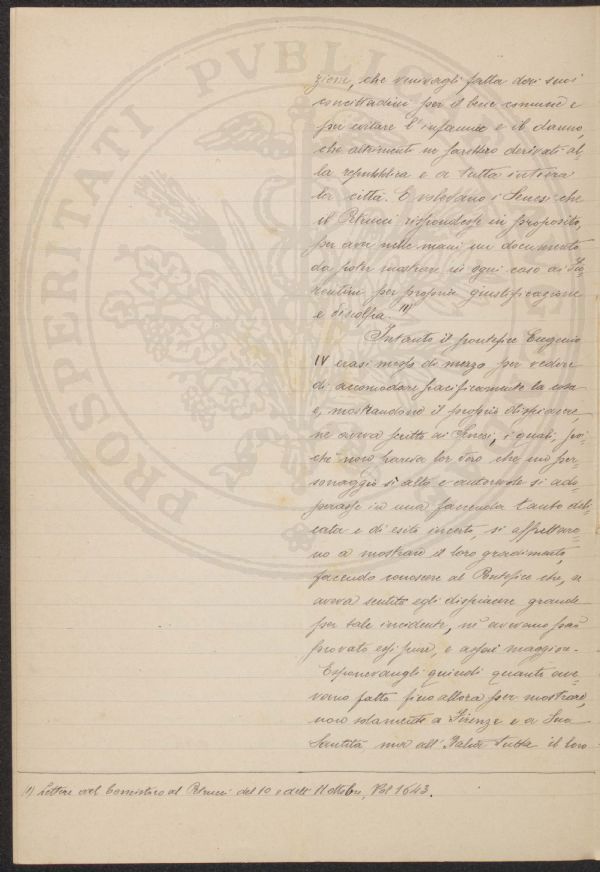 zioni, che venivagli fatta dai suoi
concittadini per il bene comune e
per evitare l'infamia e il danno,
che altrimenti ne sarebbero derivati al=
la repubblica e a tutta intiera
la città. E volevano i Senesi che
il Petrucci rispondesse in proposito,
per aver nelle mani un documento
da poter mostrare in ogni caso ai Fio=
rentini per propria giustificazione
e discolpa. (1)
Intanto il pontefice Eugenio
IV erasi messo di mezzo per vedere
di accomodare pacificamente la cosa
e, mostrandone il proprio dispiacere,
ne aveva scritto ai Senesi, i quali, poi=
chè non pareva lor vero che un per=
sonaggio sì alto e autorevole si ado=
perasse in una faccenda tanto deli=
cata e di esito incerto, si affrettaro=
no a mostrare il loro gradimento,
facendo conoscere al Pontefice che, se
aveva sentito egli dispiacere grande
per tale incidente, ne avevano però
provato essi pure, e assai maggiore.
Esponevangli quindi quanto ave=
vano fatto fino allora per mostrare,
non solamente a Firenze e a Sua
Santità, ma all'Italia tutta il loro
(1) Lettere del Concistoro al Petrucci del 10 e dell' 11 Ottobre, Vol 1643.
PROSPERITATI PVBLIC